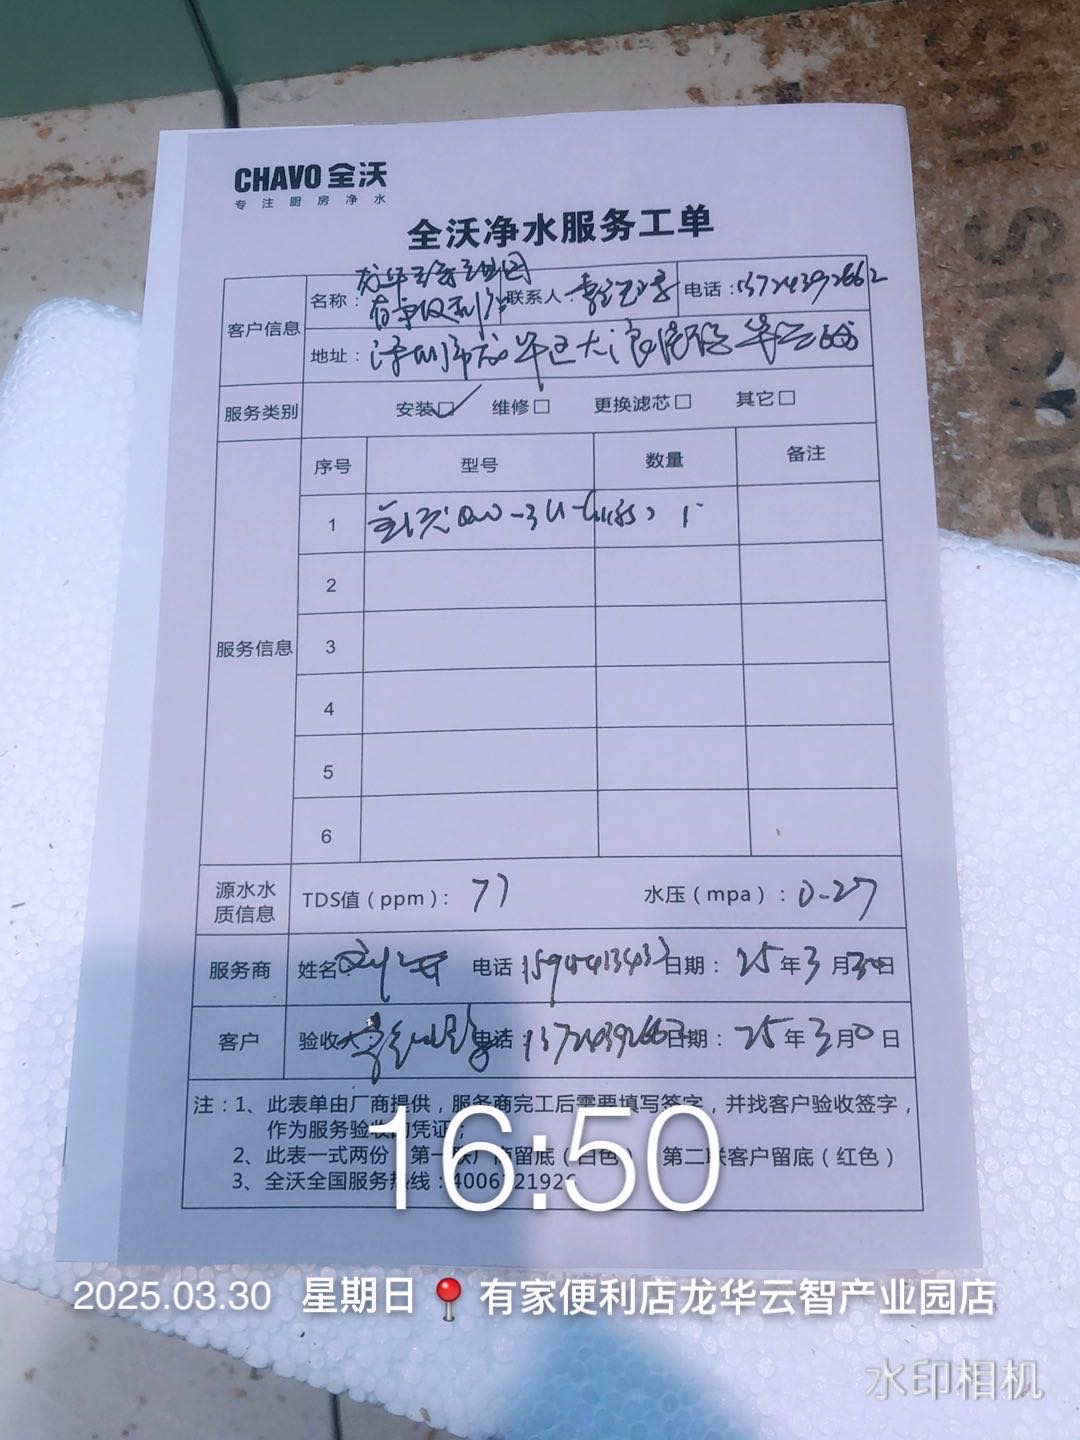 CHAVO 全沃
专注厨房净水
全沃净水服务工单
客户信息
名称：
有家便利店
联系人：
电话：13724392662
地址：深圳市龙华区大浪街道
服务类别
安装☑ 维修□ 更换滤芯□ 其它□
服务信息
序号 型号 数量 备注
1
2
3
4
5
6
源水水质信息
TDS值（ppm）：77 水压（mpa）：0.27
服务商 姓名：刘 电话： 日期：25年3月30日
客户 验收人： 电话：13724392662 日期：25年3月 日
注：1、此表单由厂商提供，服务商完工后需要填写签字，并找客户验收签字，
作为服务验收的凭证；
2、此表一式两份，第一联厂商留底（白色） 第二联客户留底（红色）
3、全沃全国服务热线：
16:50
2025.03.30 星期日 有家便利店龙华云智产业园店
水印相机